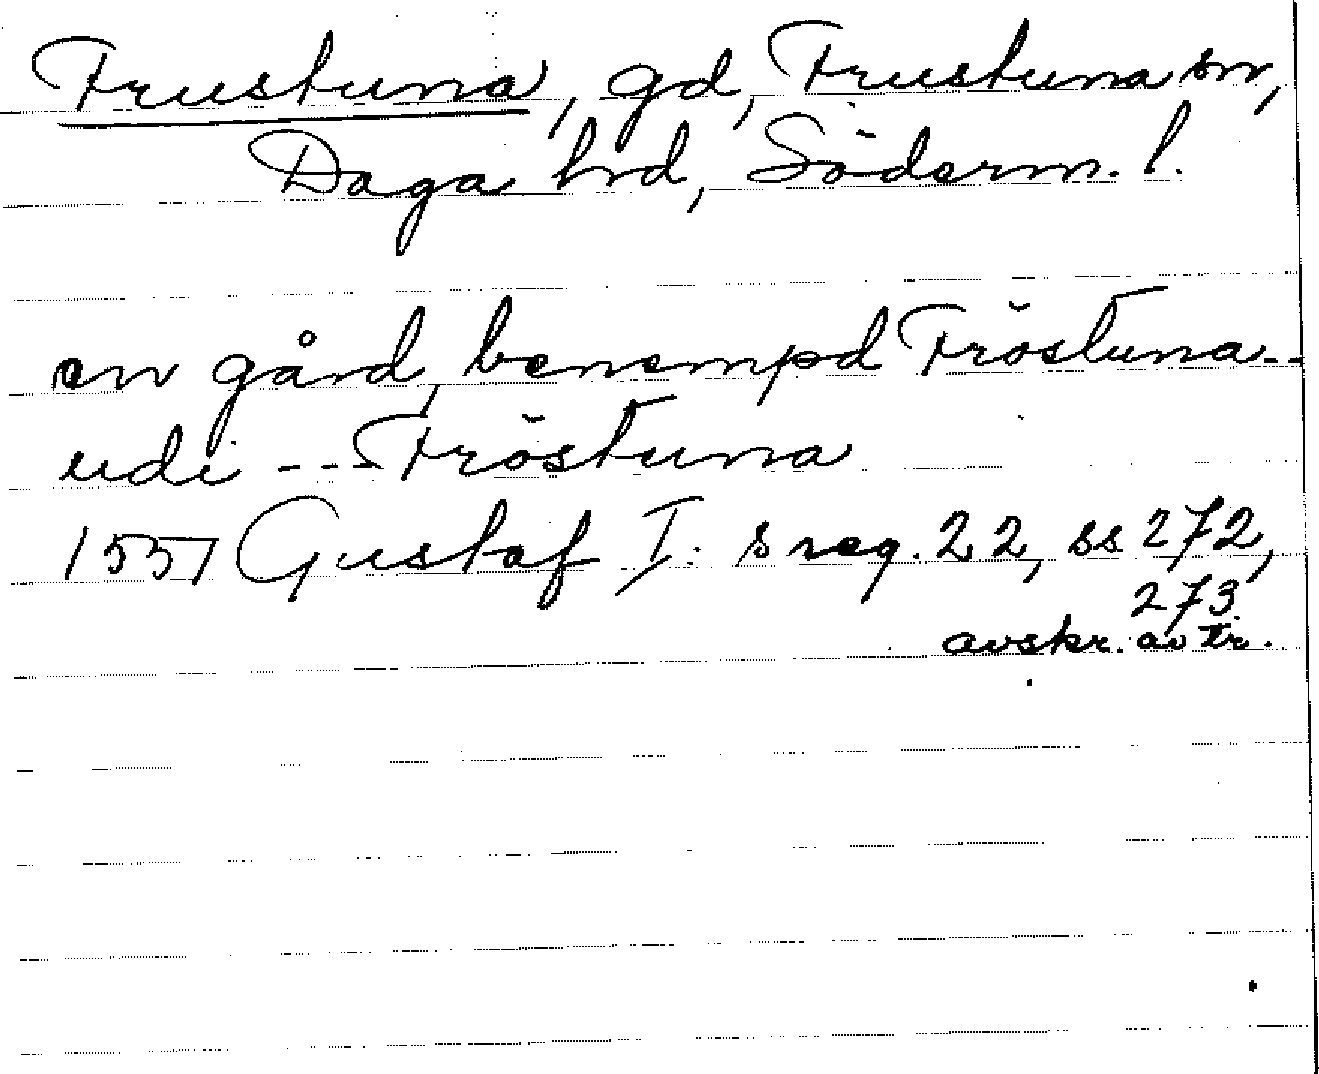 Frustuna, gd, Frustuna sn,
Daga hrd, Söderm. l.
en gård, benempd Fröstuna --
udi --- Fröstuna
1551 Gustaf I:s reg. 22, ss 272,
273
avskr. av tr.